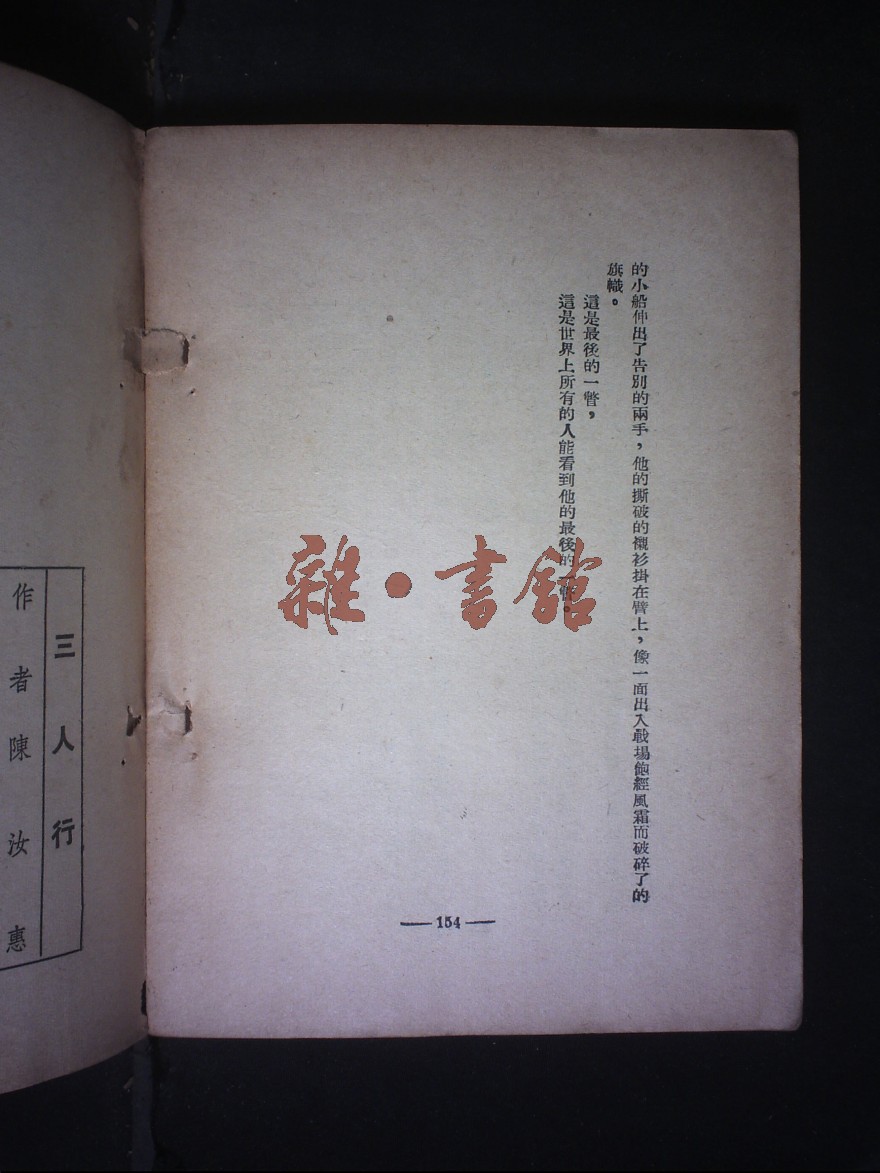 的小船伸出了告別的兩手，他的撕破的襯衫掛在臂上，像一面出入戰場飽經風霜而破碎了的
旗幟。
這是最後的一瞥，
這是世界上所有的人能看到他的最後的一瞥。
—154—
三人行
作者陳汝惠
雜·書館